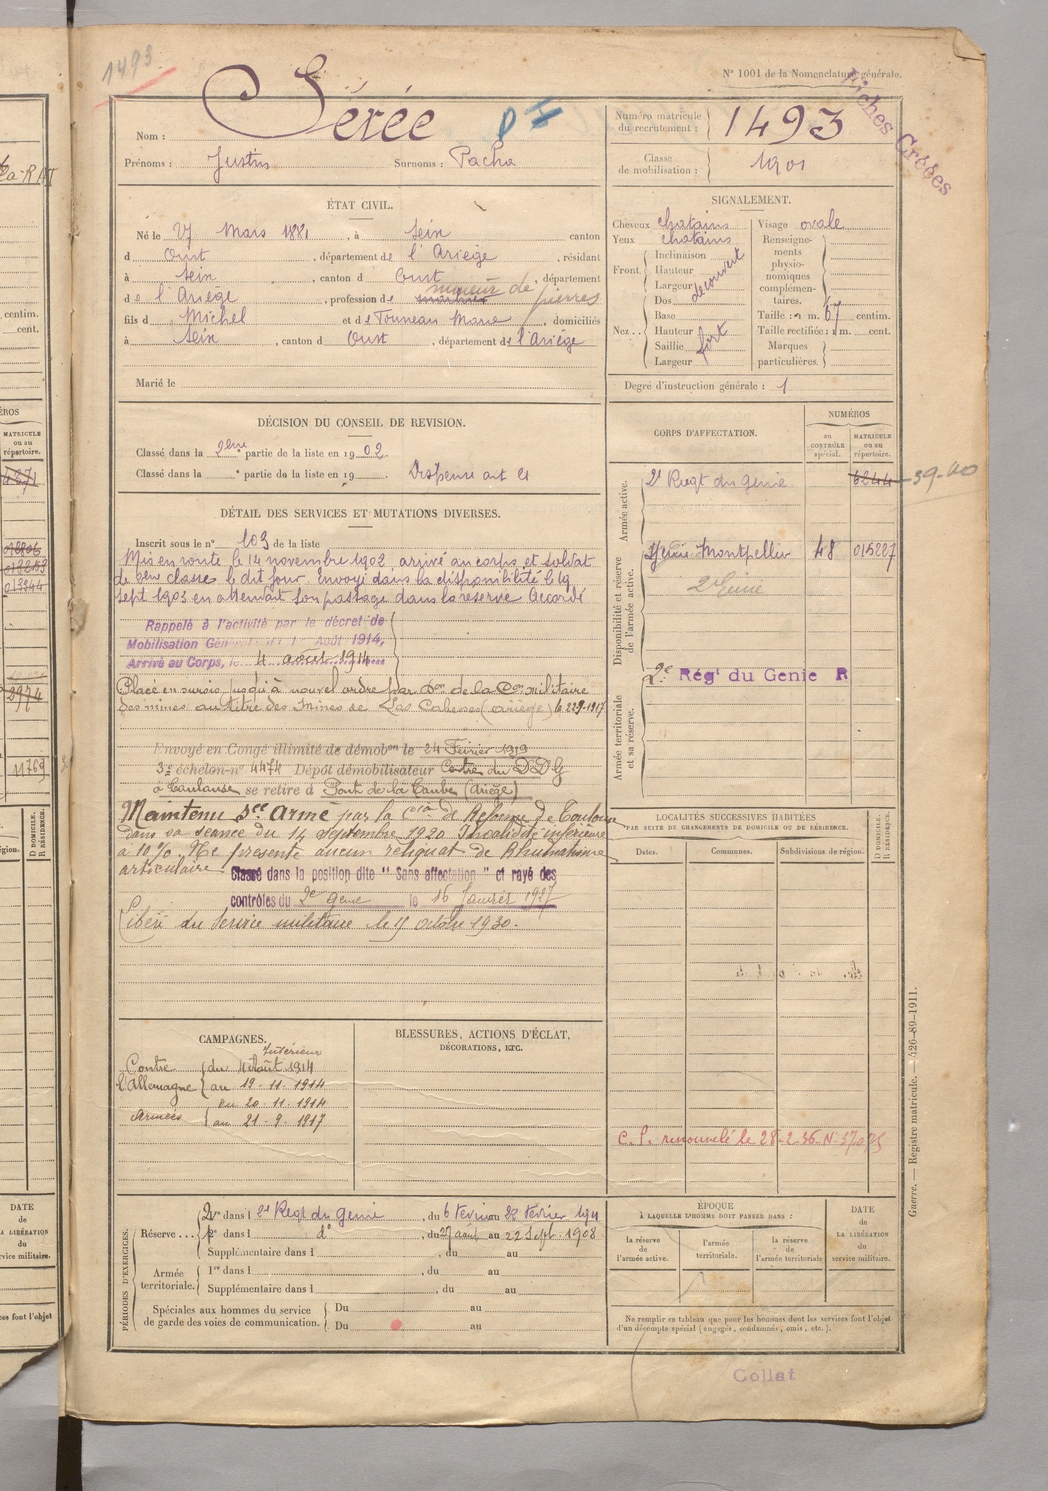 1493
N° 1001 de la Nomenclature générale.
Fiches Créées
Nom : Sérée
Prénoms : Justin Surnoms : Pacha
Numéro matricule du recrutement : 1493
Classe de mobilisation : 1901
ÉTAT CIVIL.
Né le 27 Mars 1881, à Sein canton
d Oust, département de l'Ariège, résidant
à Sein, canton d Oust, département
de l'Ariège, profession de mineur de pierres
fils d Michel et de Tonneau Marie, domiciliés
à Sein, canton d Oust, département de l'Ariège
Marié le
SIGNALEMENT.
Cheveux chatains
Yeux chatains
Front. Inclinaison
Hauteur
Largeur
découvert
Nez. Dos
Base
Hauteur
Saillie
Largeur
fort
Visage ovale
Renseignements physionomiques complémentaires.
Taille : 1 m. 67 centim.
Taille rectifiée : 1 m. cent.
Marques particulières.
Degré d'instruction générale : 1
DÉCISION DU CONSEIL DE REVISION.
Classé dans la 2ème partie de la liste en 1902.
Classé dans la e partie de la liste en 19 . Dispensé art 21
CORPS D'AFFECTATION.
NUMÉROS
au CONTRÔLE spécial.
MATRICULE ou au répertoire.
Armée active.
2e Regt du génie 6244 39-40
Disponibilité et réserve de l'armée active.
Génie Montpellier 48 015227
2e Génie
Armée territoriale et sa réserve.
2e Rég' du Genie R
DÉTAIL DES SERVICES ET MUTATIONS DIVERSES.
Inscrit sous le n° 103 de la liste
Mis en route le 14 novembre 1902 arrivé au corps et soldat
de 2eme classe le dit jour. Envoyé dans la disponibilité le 19
sept 1903 en attendant son passage dans la réserve Accordé
Rappelé à l'activité par le décret de
Mobilisation Générale du 1er Août 1914,
Arrivé au Corps, le 4 août 1914
Placé en sursis jusqu'à nouvel ordre par Don de la Con militaire
des mines au titre des Mines de Las Cabesses (Ariège) le 22-9-1917
Envoyé en Congé illimité de démobon le 24 Février 1919
3e échelon n° 4474 Dépôt démobilisateur Centre du DDG
à Toulouse se retire à Pont de la Taube (Ariège)
Maintenu Sce Armé par la Cion de Réforme de Toulouse
dans sa séance du 14 Septembre 1920 Invalidité inférieure
à 10%. Ne présente aucun reliquat de Rhumatisme
articulaire.
Classé dans la position dite "Sans affectation" et rayé des
contrôles du 2e génie le 16 Janvier 1927
Libéré du Service militaire le 15 octobre 1930.
LOCALITÉS SUCCESSIVES HABITÉES
PAR SUITE DE CHANGEMENTS DE DOMICILE OU DE RÉSIDENCE.
Dates. Communes. Subdivisions de région. D DOMICILE. R RÉSIDENCE.
C. P. renouvelé le 28-2-36 N° 37075
CAMPAGNES.
Intérieur
Contre l'Allemagne du 4 Août 1914
au 19-11-1914
Armées du 20-11-1914
au 21-9-1917
BLESSURES, ACTIONS D'ÉCLAT,
DÉCORATIONS, ETC.
PÉRIODES D'EXERCICES.
Réserve ... 2me dans l 2e Regt du génie, du 6 février au 22 février 1911
1re dans l d°, du 27 août au 22 Sept. 1908
Supplémentaire dans l , du au
Armée territoriale. 1re dans l , du au
Supplémentaire dans l , du au
Spéciales aux hommes du service de garde des voies de communication. Du au
Du au
ÉPOQUE
À LAQUELLE L'HOMME DOIT PASSER DANS :
la réserve de l'armée active.
l'armée territoriale.
la réserve de l'armée territoriale
DATE de LA LIBÉRATION du service militaire.
Ne remplir ce tableau que pour les hommes dont les services font l'objet
d'un décompte spécial (engagés, condamnés, omis, etc.).
Guerre. — Registre matricule. — 426-89-1911.
Collat
centim.
cent.
MATRICULE ou au répertoire.
013344
2974
11769
D DOMICILE.
R RÉSIDENCE.
DATE
de
LA LIBÉRATION
du
service militaire.